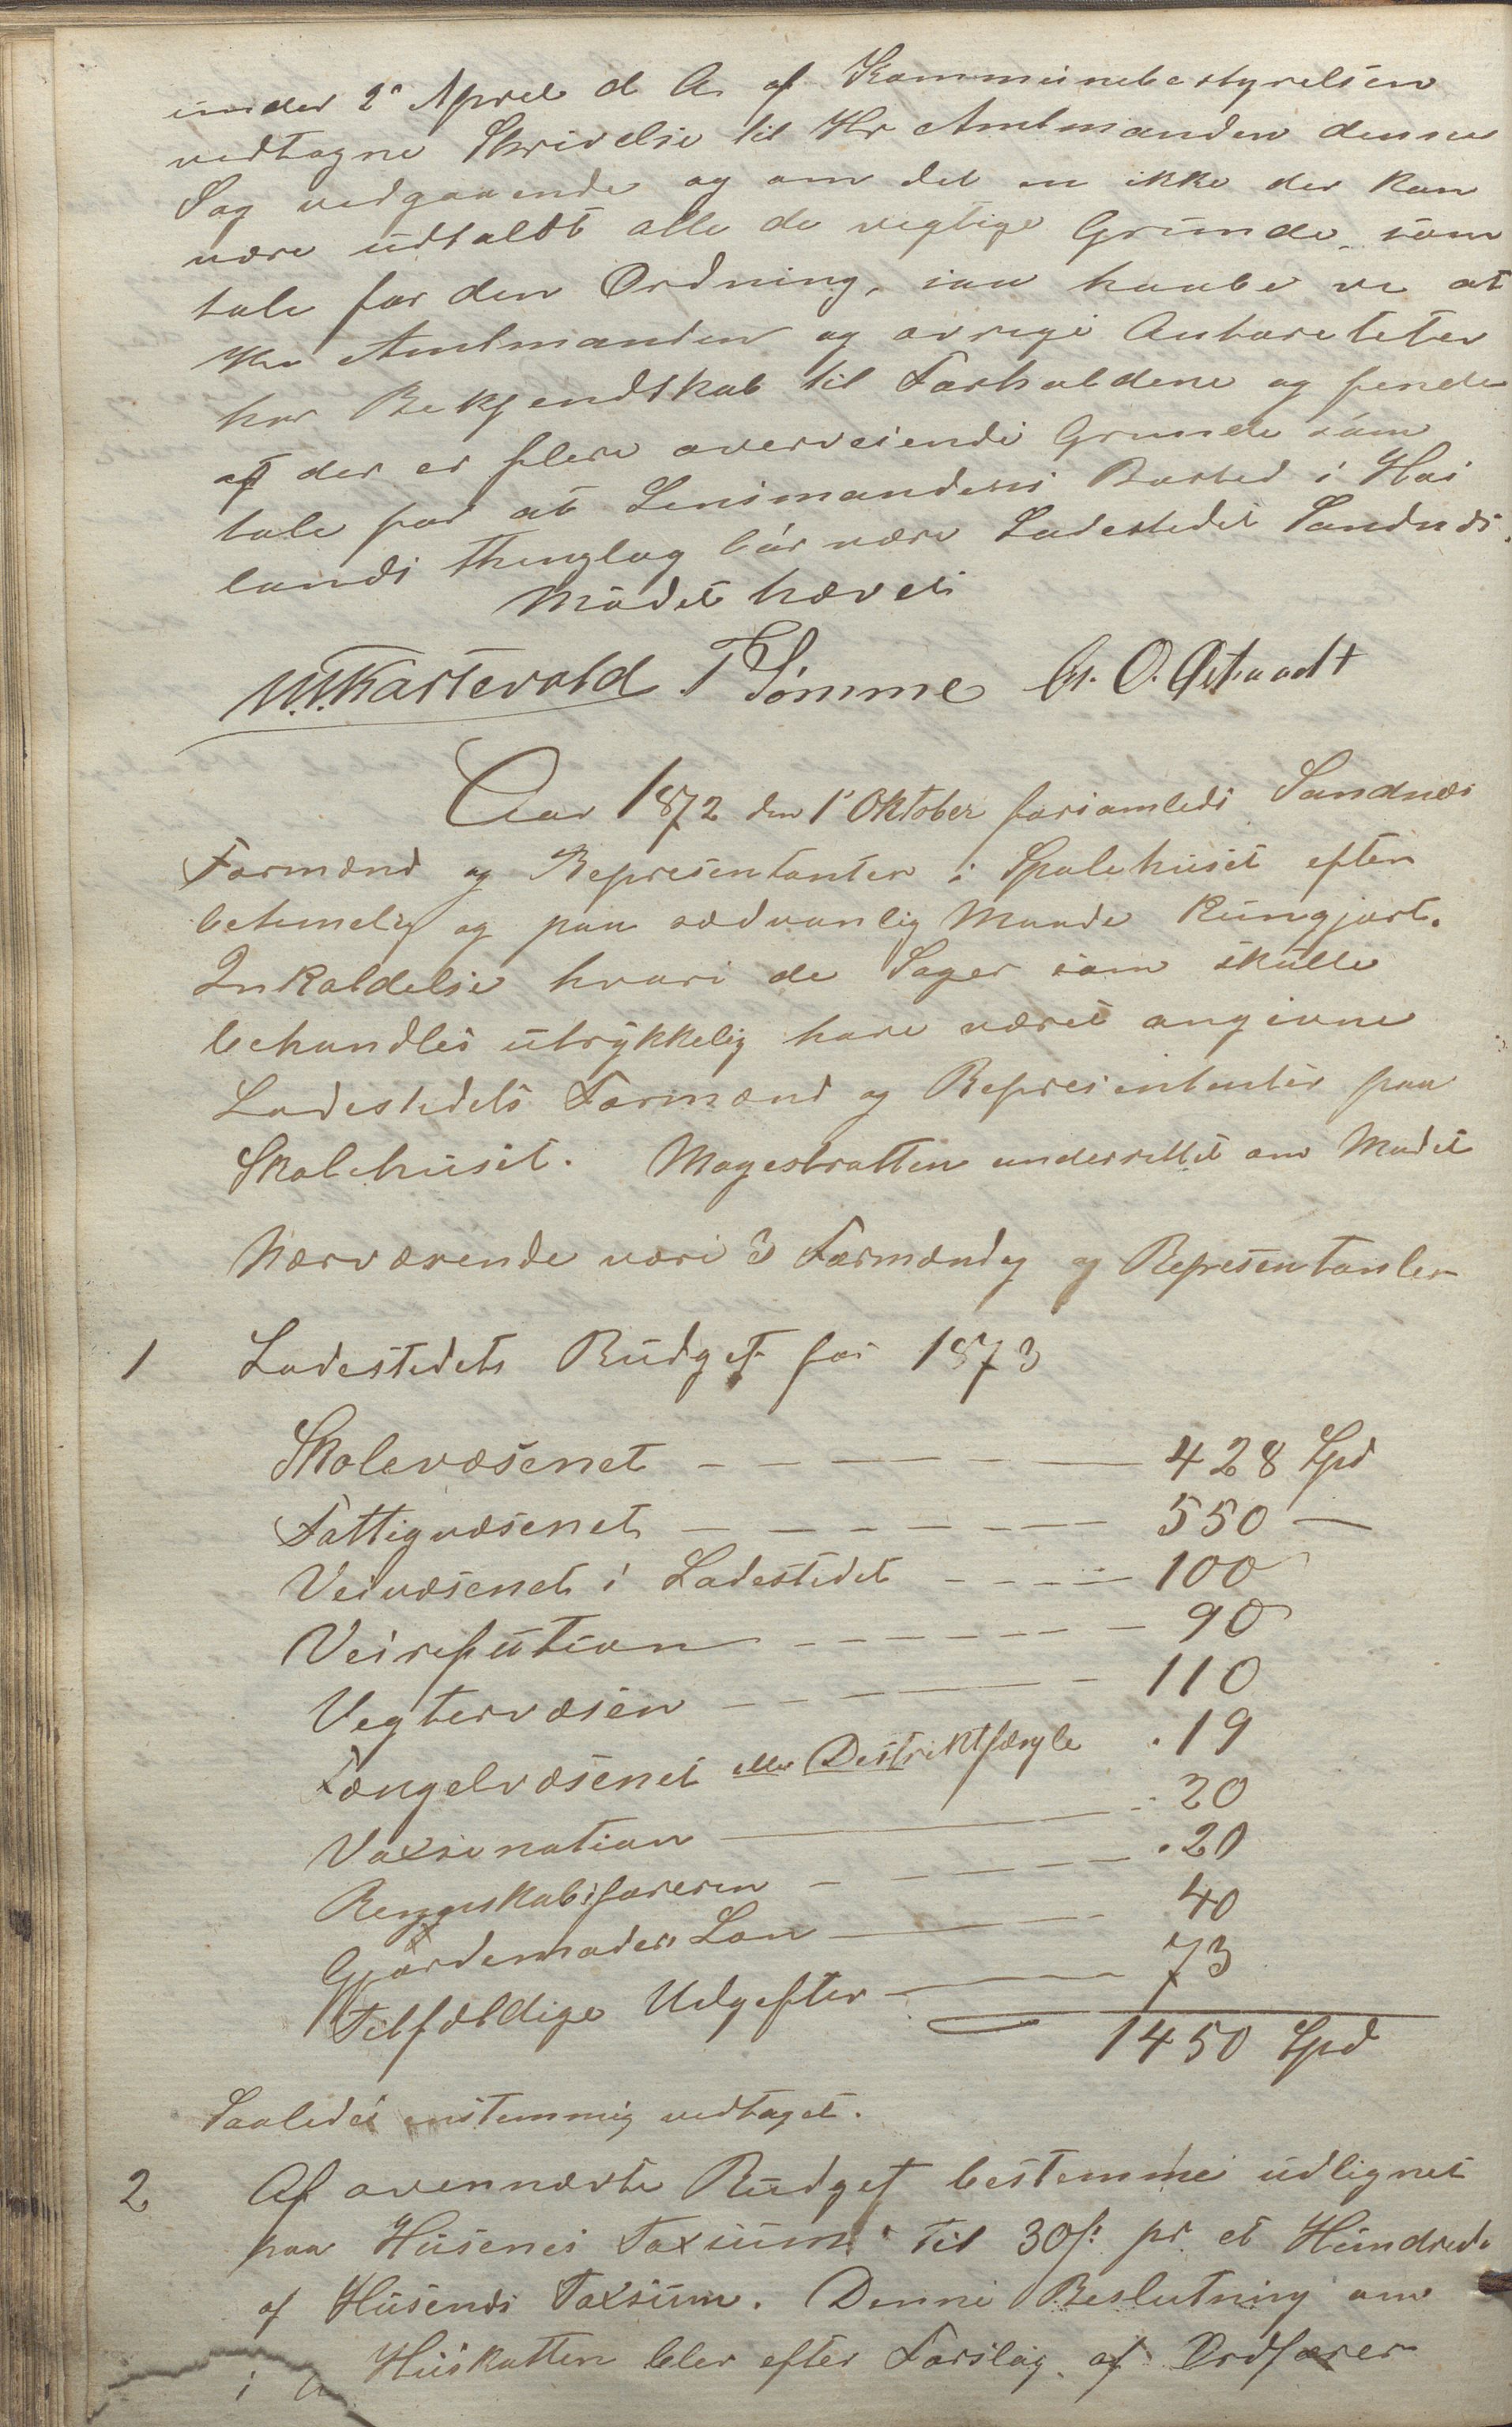 under 2' April d A. af Kommunebestyrelsen
vedtagne Skrivelse til Hr Amtmanden denne
Sag vedgaaende og om det en ikke der kan
være udtaldt alle de vegtige Grunde som
tale for den Ordning, saa haabe vi at
Hr Amtmanden og øvrige Autoriteter
har Bekjendtskab til Forholdene og finde
at der er flere overveiende Grunde som
tale for at Lensmandens Bosted i Høi
lands Thinglag bør være Ladestedet Sandnæs.
Mødet hævet
T Sømme
Aar 1872 den 1' Oktober forsamledes Sandnæs
Formænd og Representanter i Skolehuset efter
betimelig og paa sædvanlig Maade kungjort
Inkaldelse hvori de Sager som skulle
behandles utrykkelig have været angivne
Ladestedets Formænd og Representanter paa
Skolehuset. Magestratten underrettet om Mødet
Nærværende vare 3 Formænd og Representanter
1 Ladestedets Budget for 1873
Skolevæsenet 428 Spd
Fattigvæsenet 550 —
Veivæsenet i Ladestedet 100
90
Vegtervæsen 110
Fængelvæsenet eller Destriktfængle 19
Vaxsination 20
Regnskabsføreren 20
Gjordemoders Løn 40
Tilfældige Udgifter 73
1450 Spd
Saaledes enstemmig vedtaget.
2 Af ovennævte Budget bestemmes udlignet
paa Husenes Taxsum til 30 s: pr. et Hundrede
af Husenes Taxsum. Denne Beslutning om
Huskatten blev efter Forslag af Ordfører